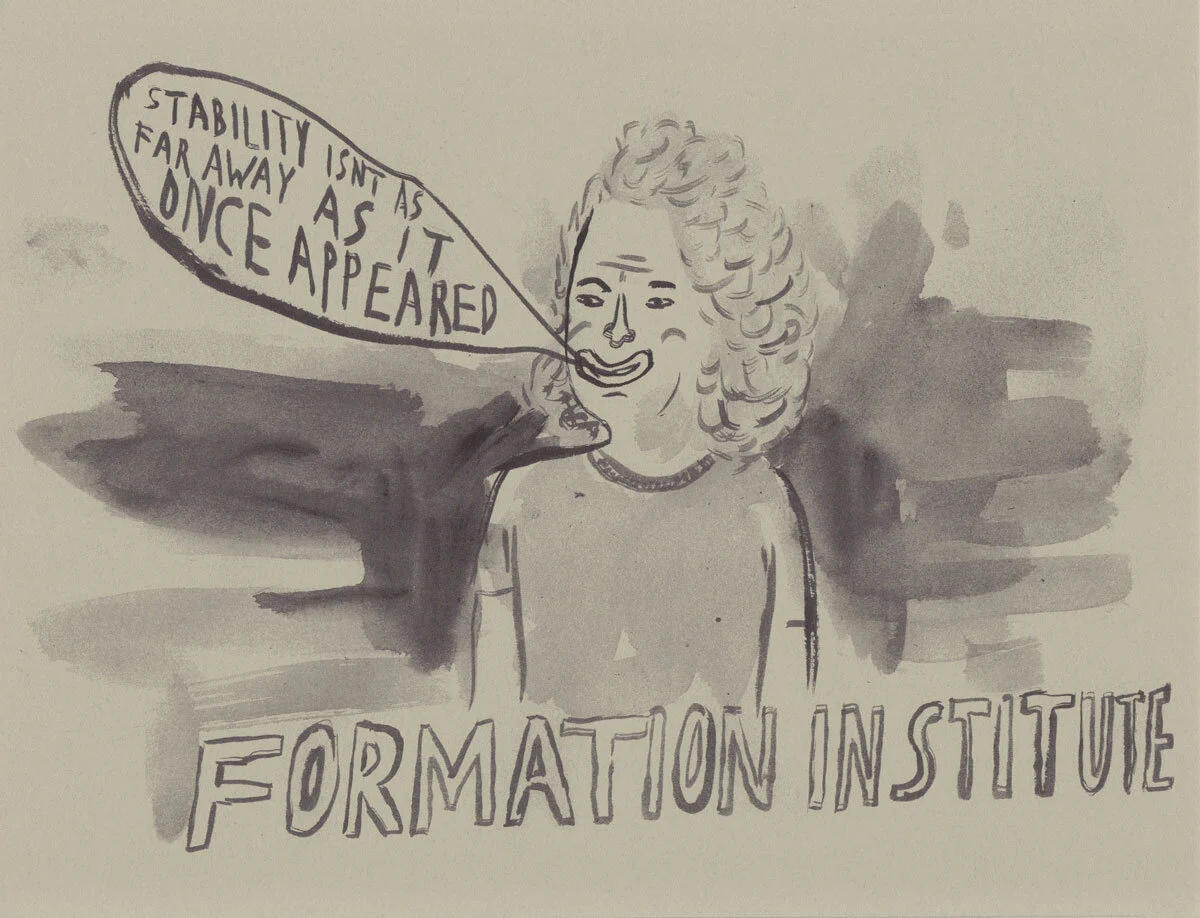 STABILITY ISNT AS
FAR AWAY AS IT
ONCE APPEARED
FORMATION INSTITUTE